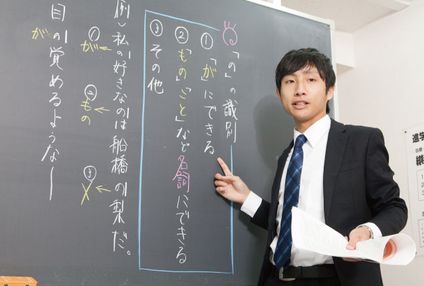 「の」の識別
①「が」にできる
②「もの」「こと」など名詞にできる
③その他
例)私の好きなのは船橋の梨だ。
①が
②もの
③×
目の覚めるような―
が
進学